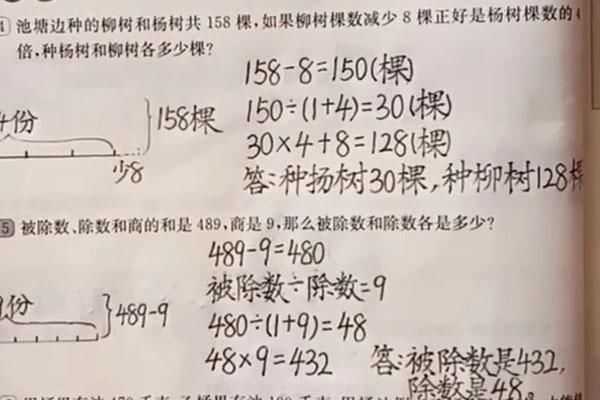 池塘边种的柳树和杨树共 158 棵,如果柳树棵数减少 8 棵正好是杨树棵数的4
倍,种杨树和柳树各多少棵?
158-8=150(棵)
150÷(1+4)=30(棵)
30×4+8=128(棵)
答:种扬树30棵,种柳树128棵
4份
158棵
少8
5 被除数、除数和商的和是 489,商是 9,那么被除数和除数各是多少?
489-9=480
被除数÷除数=9
480÷(1+9)=48
48×9=432
答:被除数是432,
除数是48。
9份
489-9